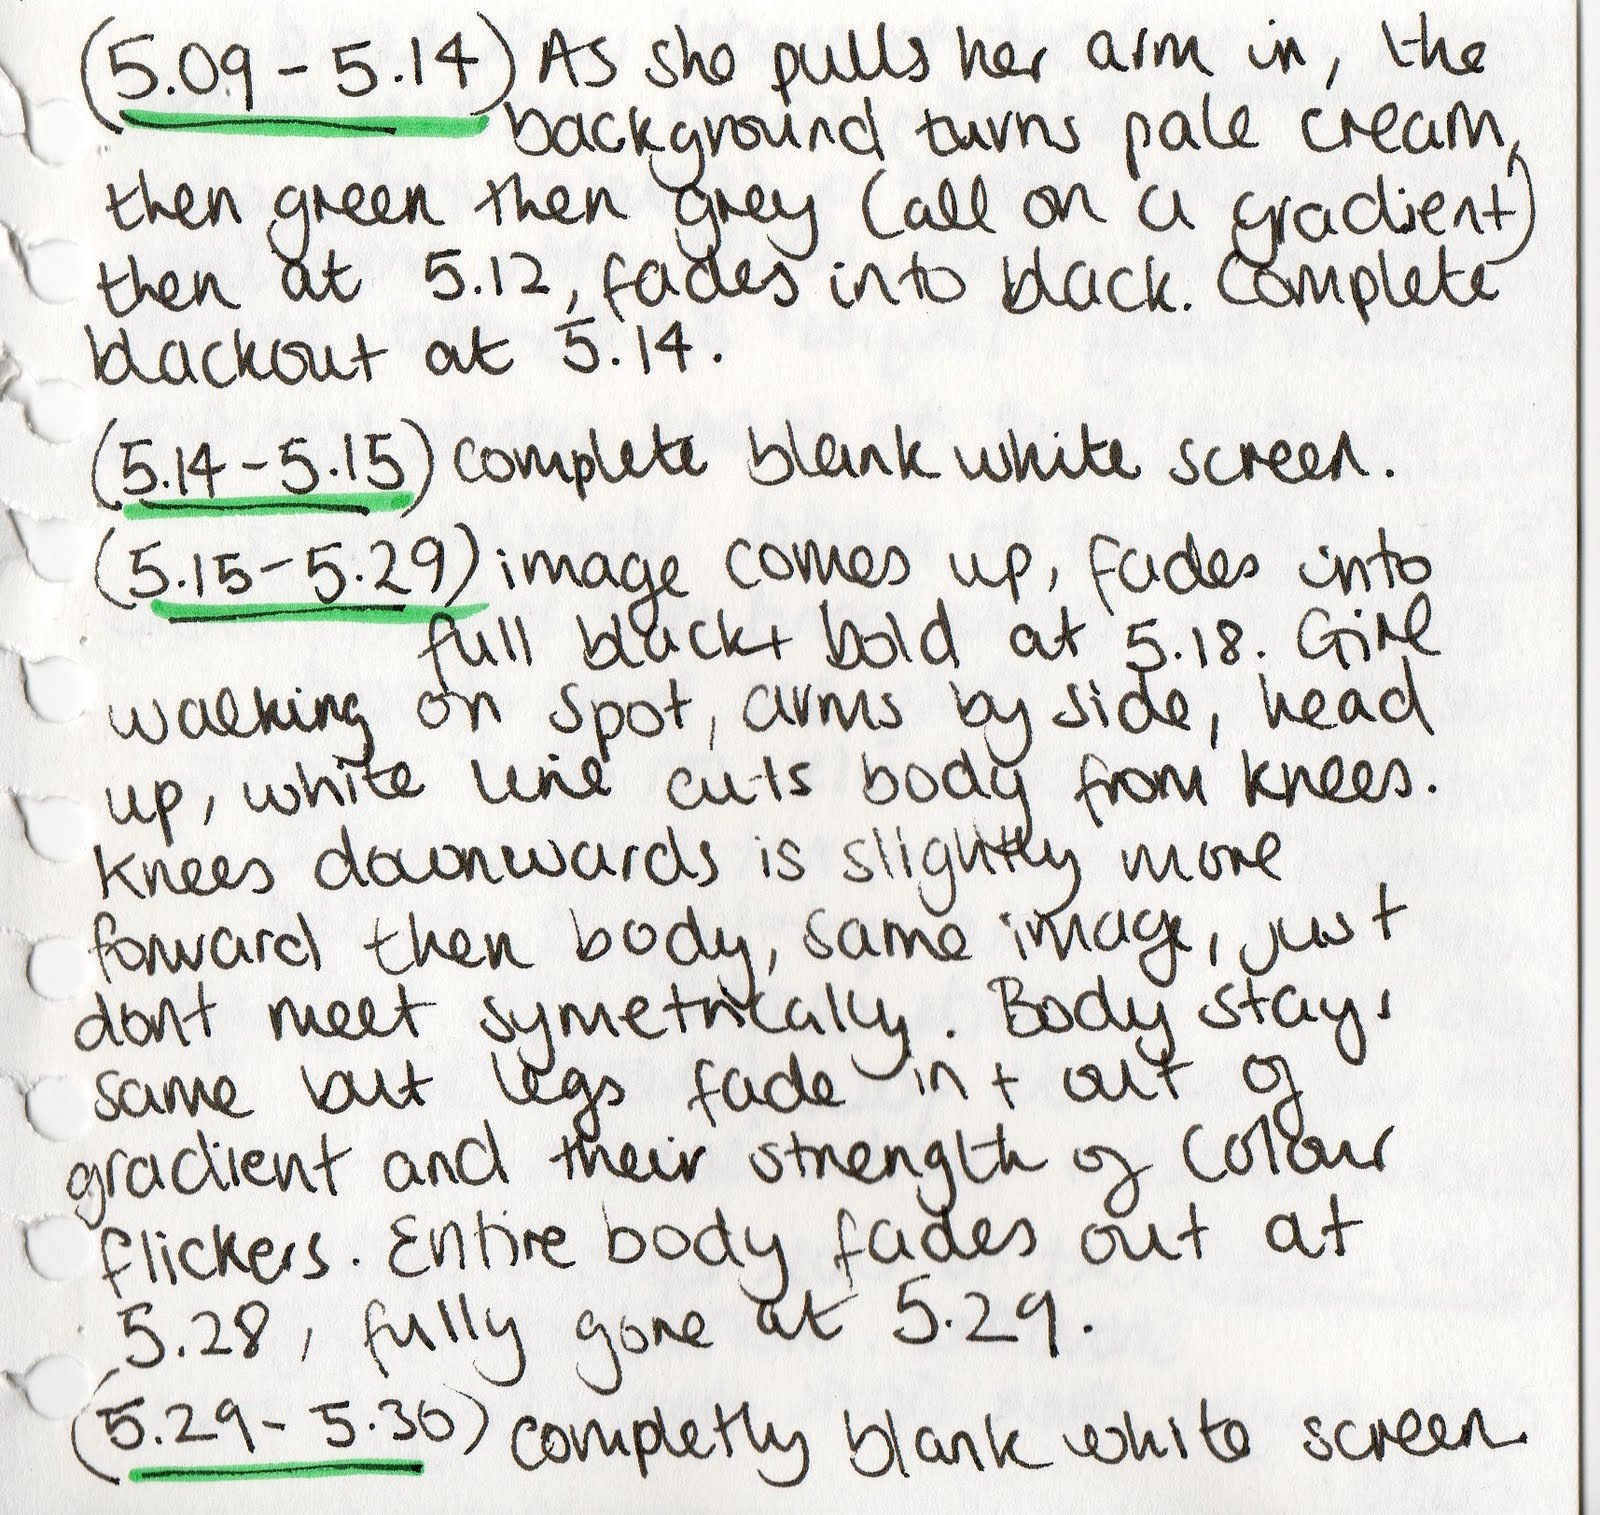 (5.09 - 5.14) As she pulls her arm in, the
background turns pale cream,
then green then grey (all on a gradient)
then at 5.12, fades into black. Complete
blackout at 5.14.
(5.14 - 5.15) complete blank white screen.
(5.15 - 5.29) image comes up, fades into
full black + bold at 5.18. Girl
walking on spot, arms by side, head
up, white line cuts body from knees.
Knees downwards is slightly more
forward then body, same image, just
dont meet symetrically. Body stays
same but legs fade in + out of
gradient and their strength of colour
flickers. Entire body fades out at
5.28, fully gone at 5.29.
(5.29 - 5.30) completly blank white screen.